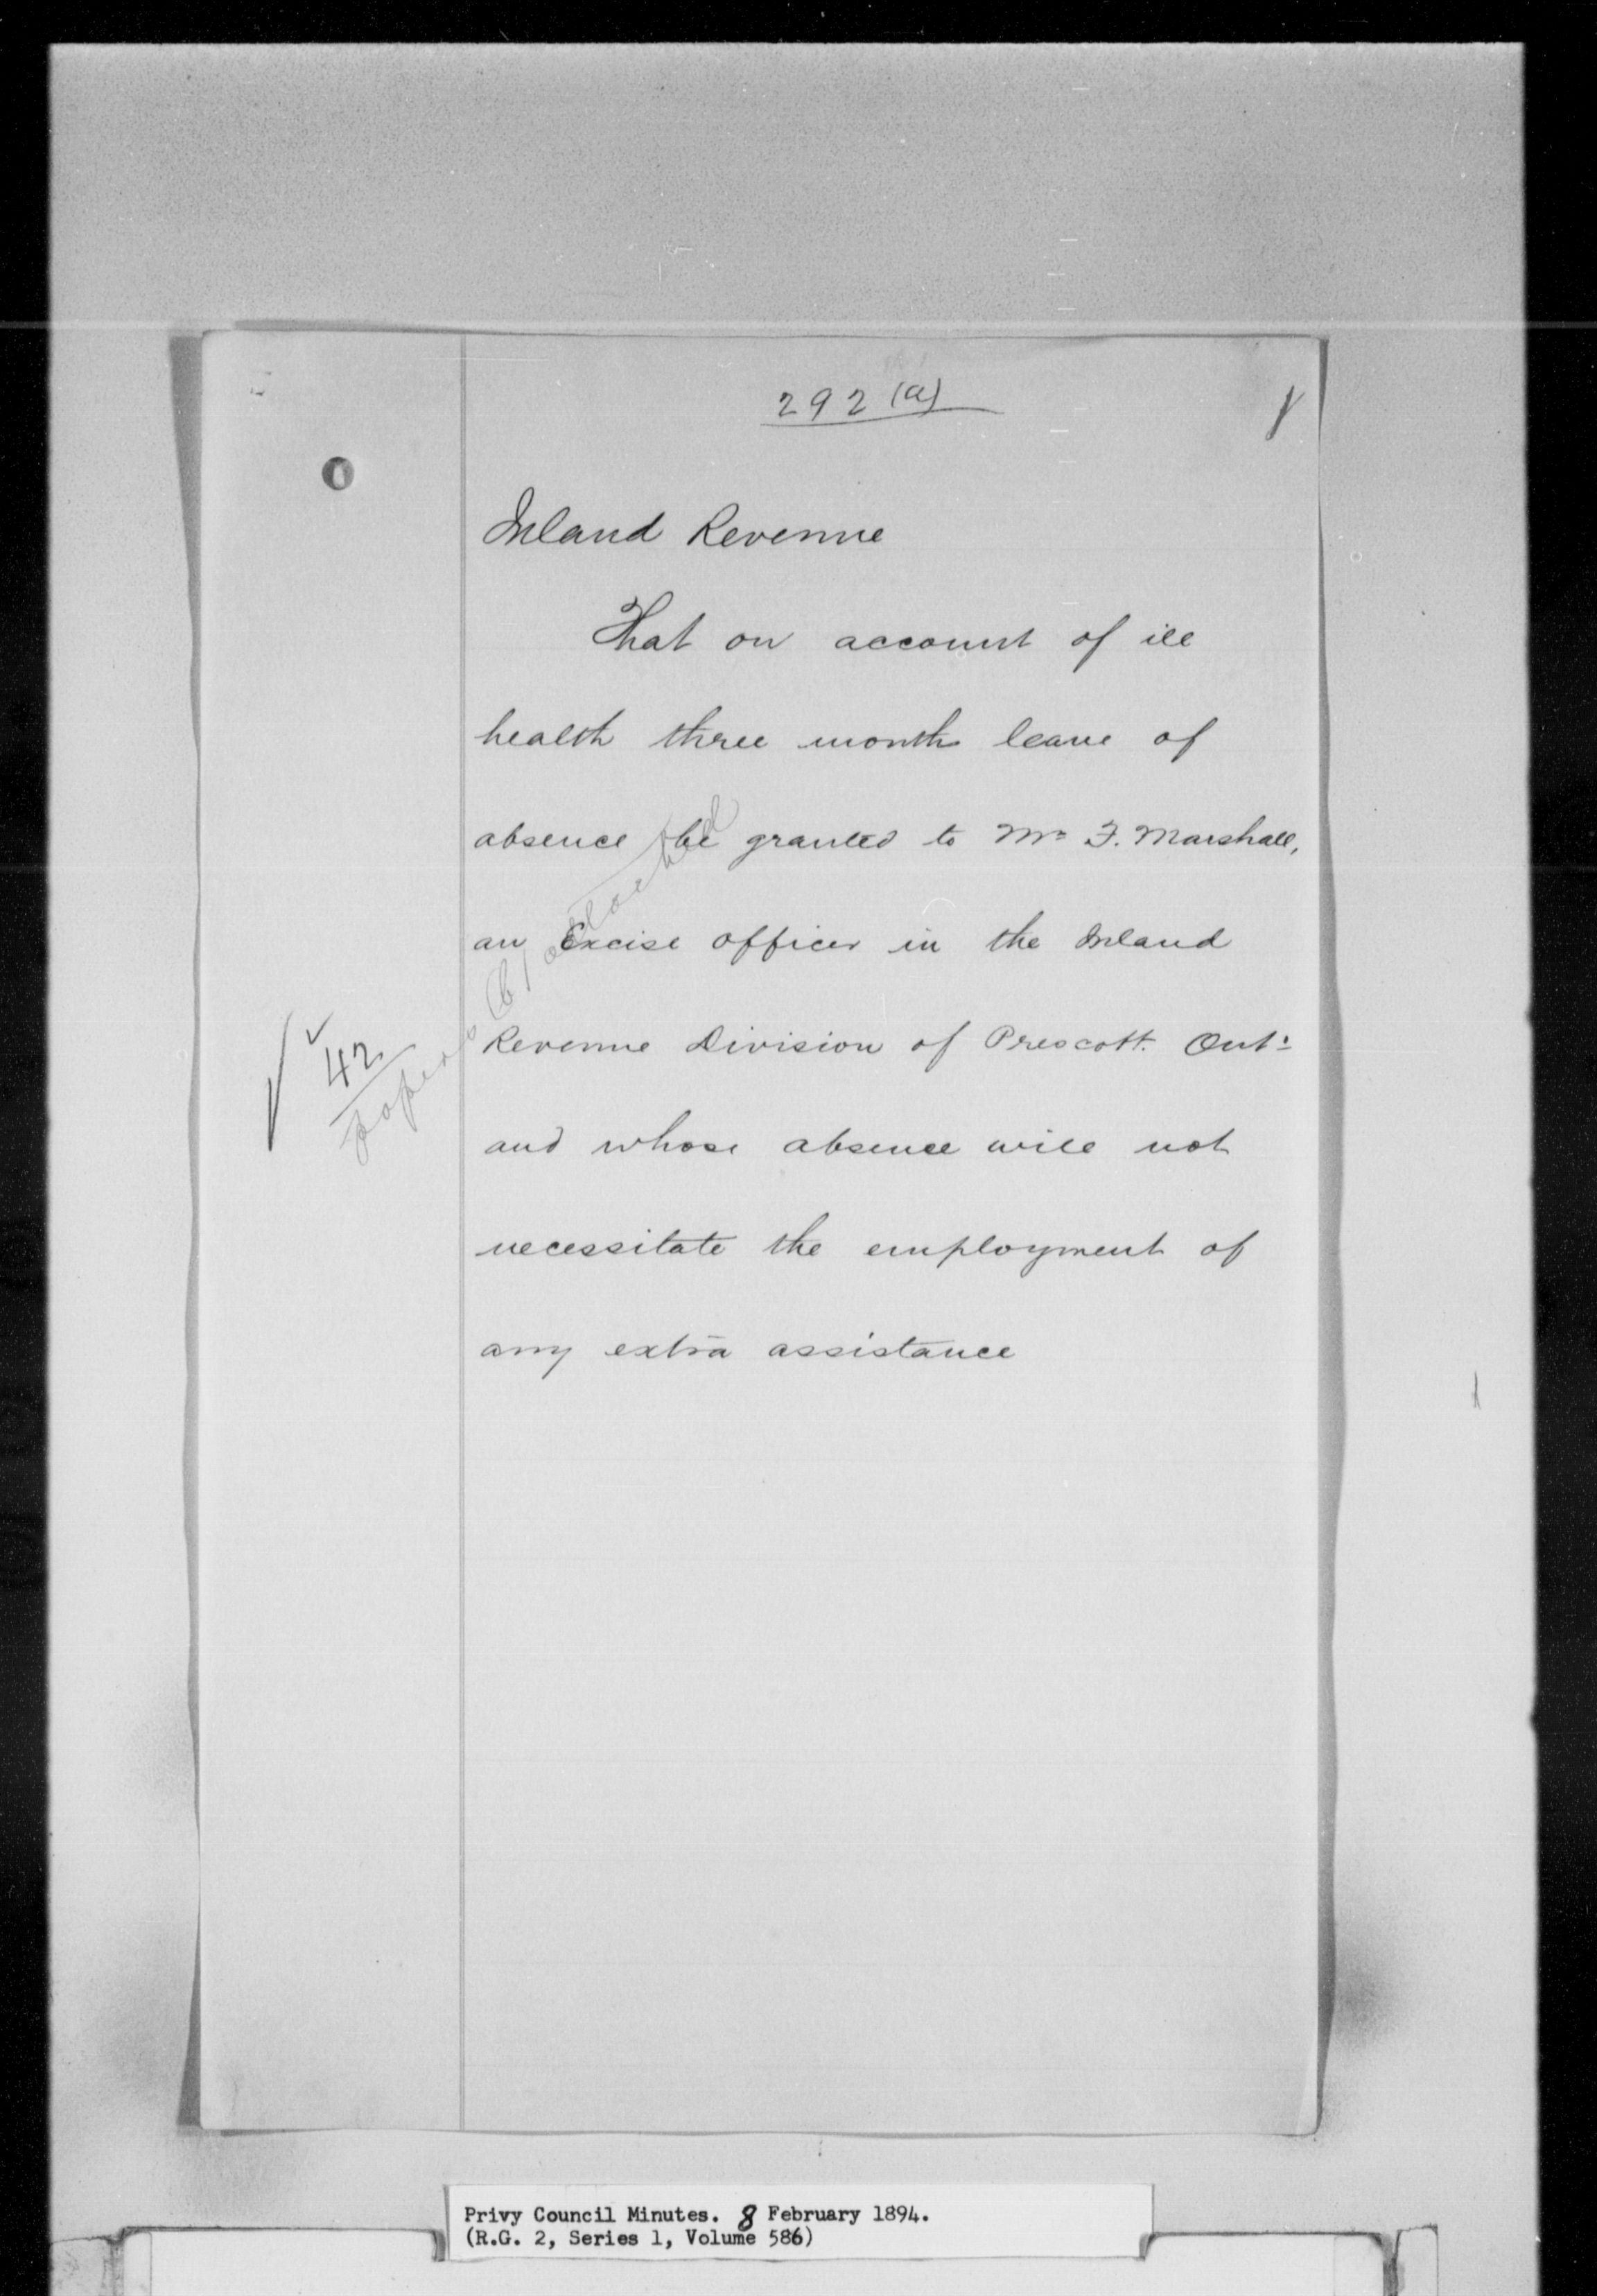 292 (a)
Inland Revenue
That on account of ill
health three months leave of
absence be granted to Mr F. Marshall,
an Excise officer in the Inland
Revenue Division of Prescott. Ont:
and whose absence will not
necessitate the employment of
any extra assistance
42
papers (b) attached
Privy Council Minutes. 8 February 1894.
(R.G. 2, Series 1, Volume 586)